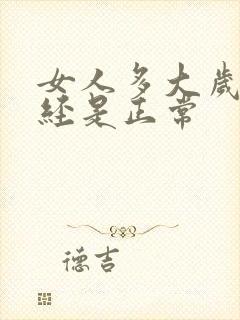 女人多大岁
经是正常
德吉